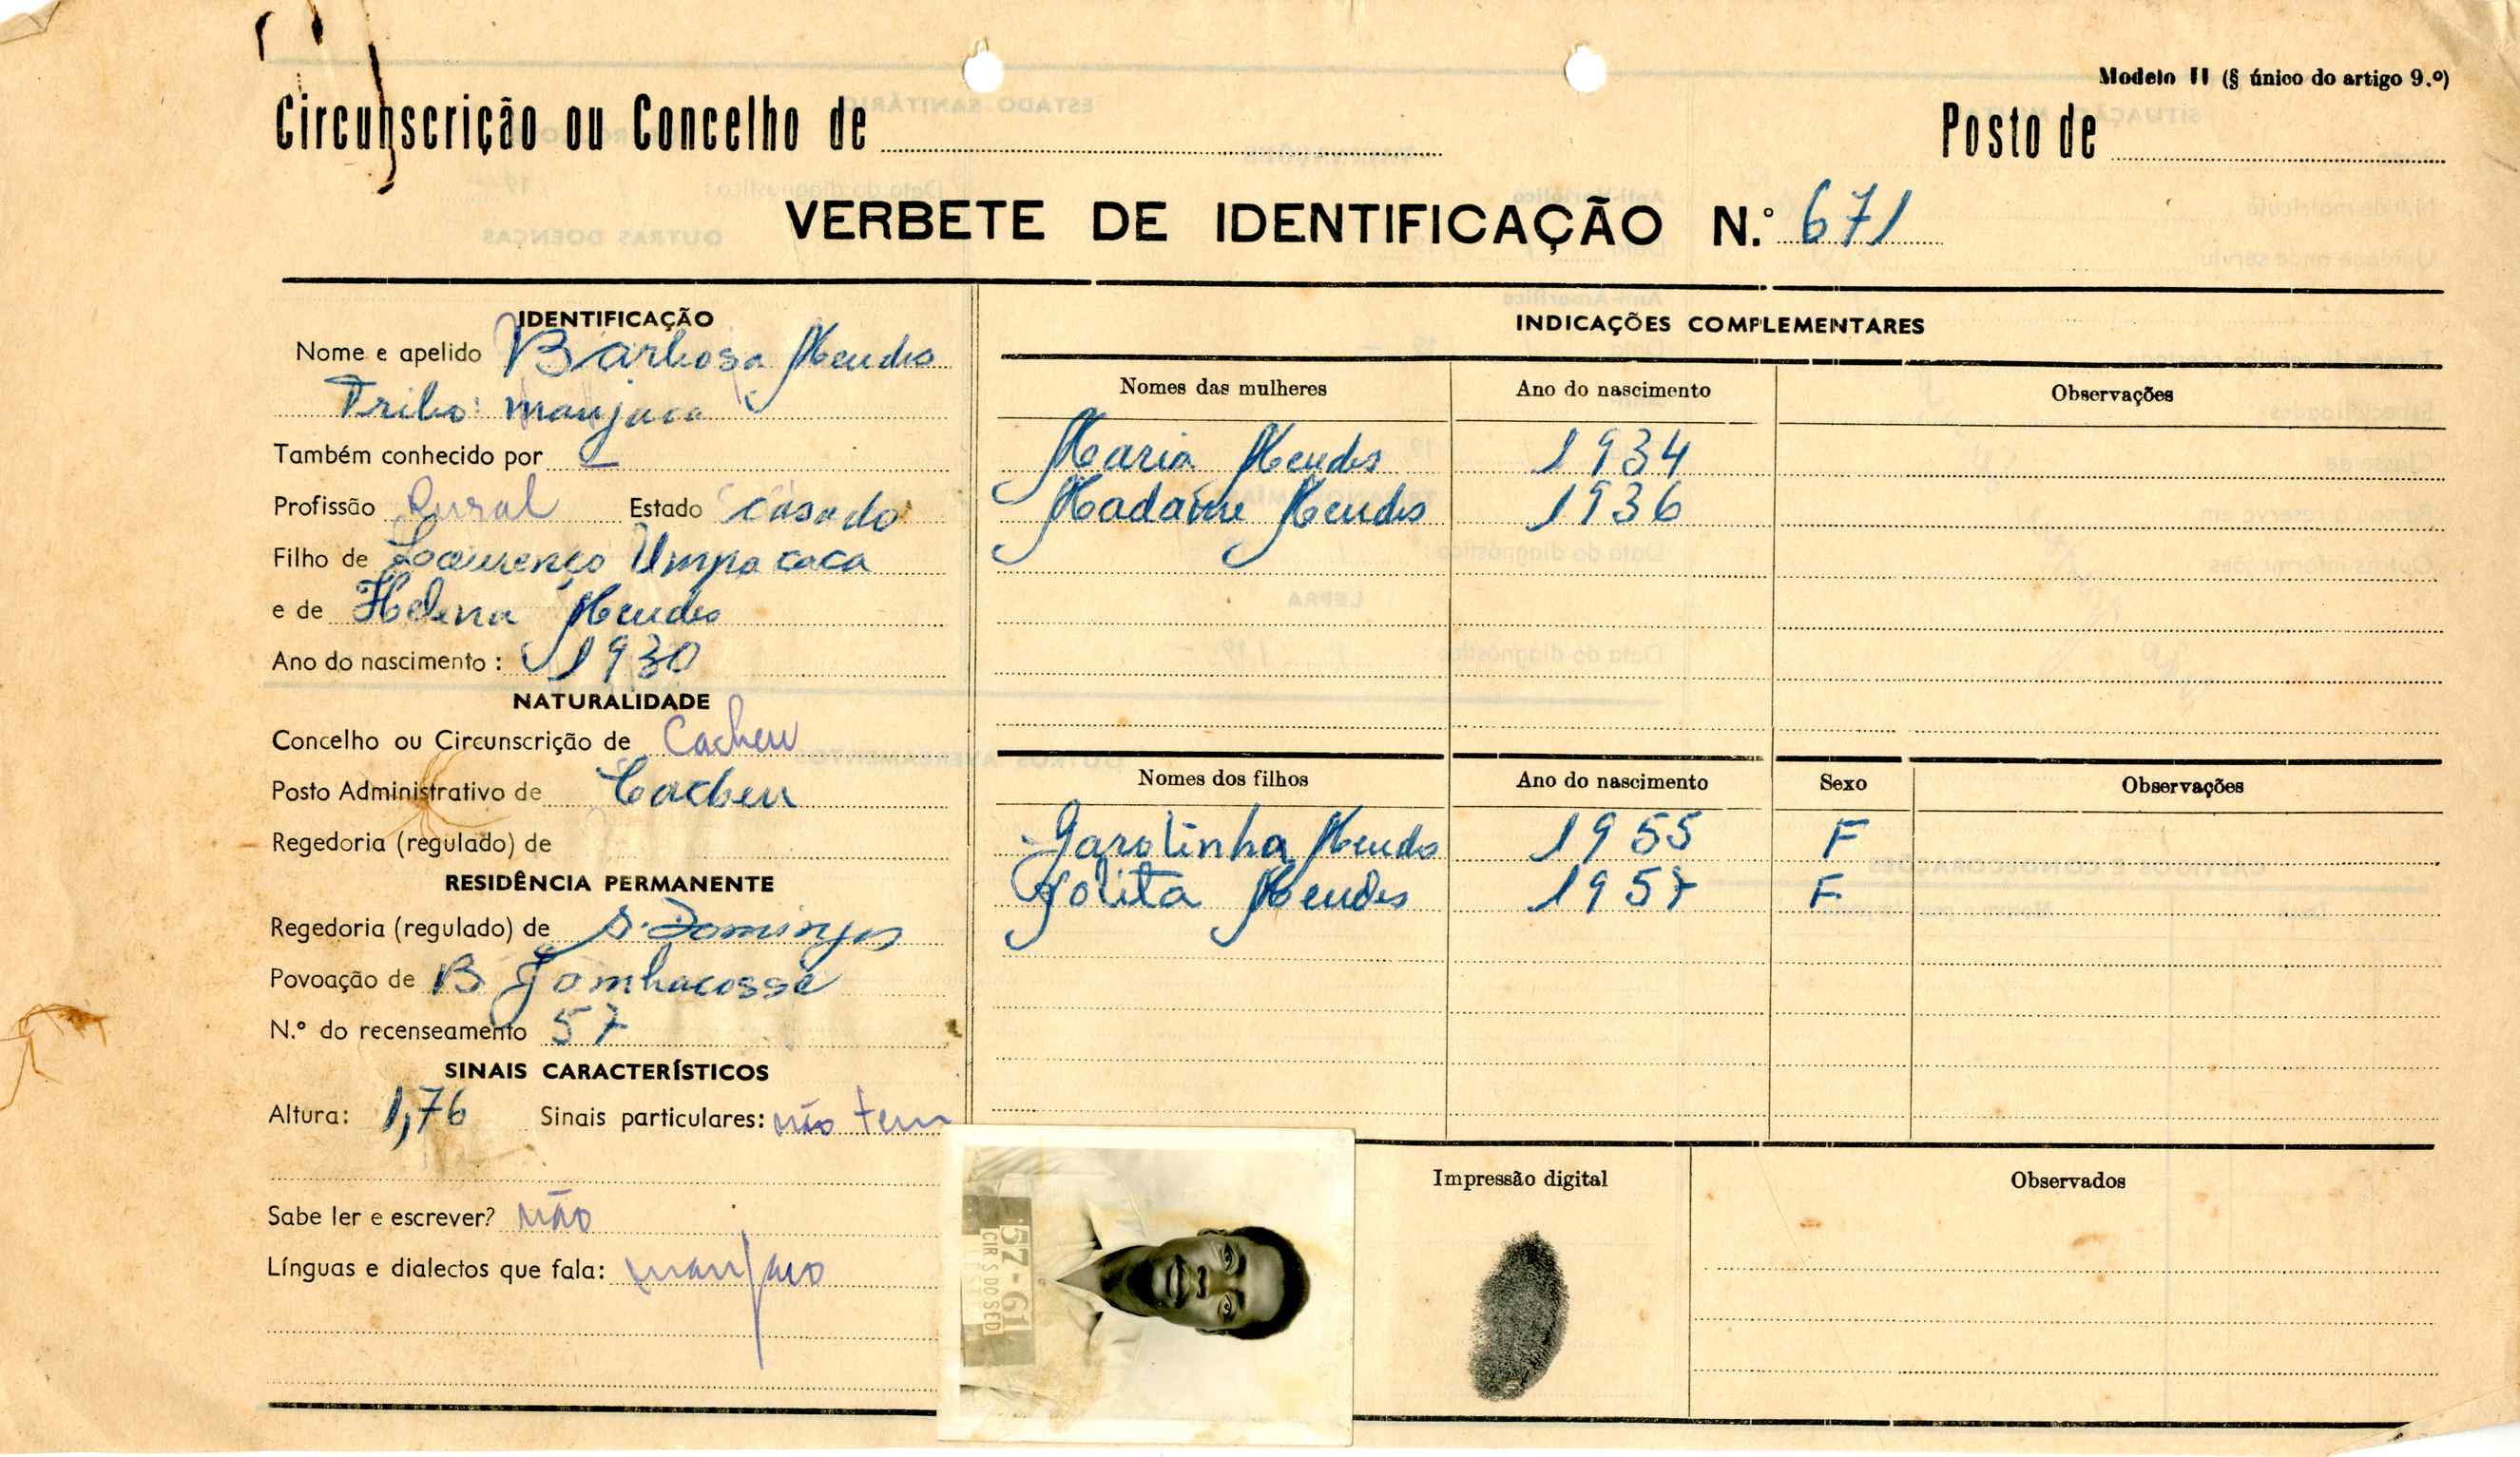 Modelo II (§ único do artigo 9.º)
Circunscrição ou Concelho de
Posto de
VERBETE DE IDENTIFICAÇÃO N.º 671
IDENTIFICAÇÃO
Nome e apelido Barbosa Mendes
Tribo: manjaca
Também conhecido por —
Profissão Rural Estado casado
Filho de Lourenço Umpacaca
e de Helena Mendes
Ano do nascimento: 1930
NATURALIDADE
Concelho ou Circunscrição de Cacheu
Posto Administrativo de Cacheu
Regedoria (regulado) de
RESIDÊNCIA PERMANENTE
Regedoria (regulado) de S. Domingos
Povoação de B
N.º do recenseamento 57
SINAIS CARACTERÍSTICOS
Altura: 1,76 Sinais particulares: não tem
Sabe ler e escrever? não
Línguas e dialectos que fala: manjaco
INDICAÇÕES COMPLEMENTARES
Nomes das mulheres Ano do nascimento Observações
Maria Mendes 1934
Madame Mendes 1936
Nomes dos filhos Ano do nascimento Sexo Observações
Garotinha Mendes 1955 F
Jolita Mendes 1957 F
57-61
CIR S DOSED
Impressão digital
Observados